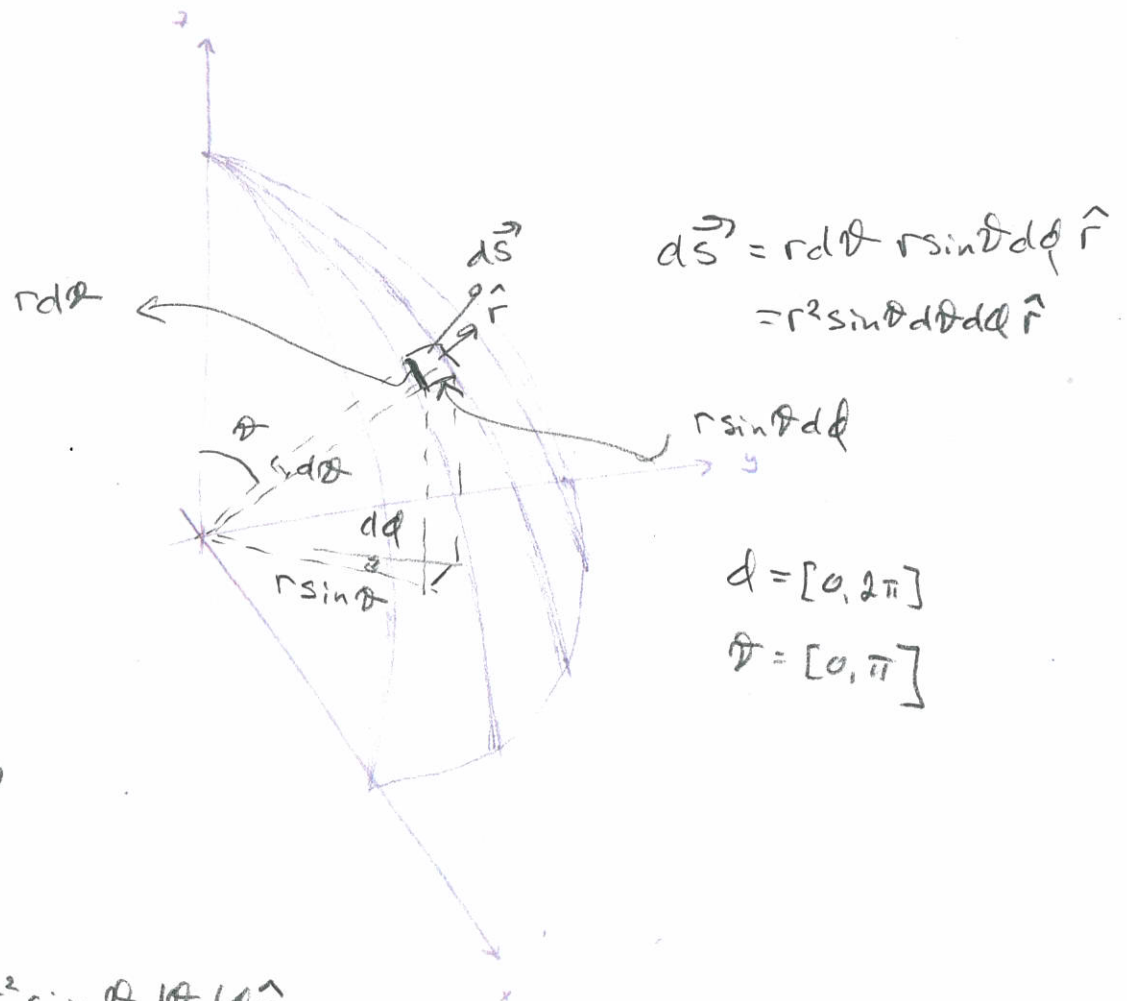 z
dS⃗
r̂
rdϑ
dS⃗ = rdϑ rsinϑdϕ r̂
=r²sinϑdϑdϕ r̂
rsinϑdϕ
y
ϑ
dϑ
dϕ
rsinϑ
ϕ=[0,2π]
ϑ=[0,π]
x